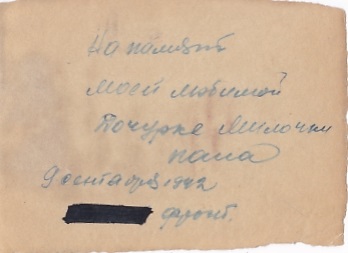 На память
моей любимой
дочурке Милочки
папа
9 сентября 1942
фронт.